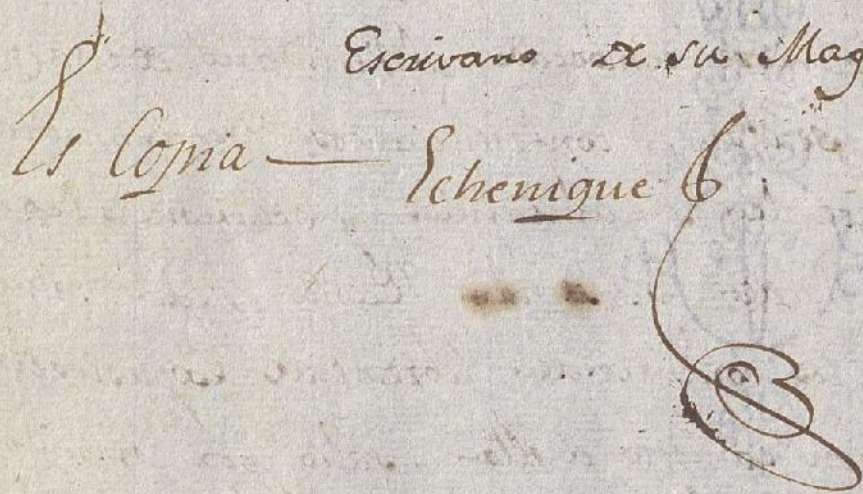 Escrivano de su Mag
Es Copia — Echenique